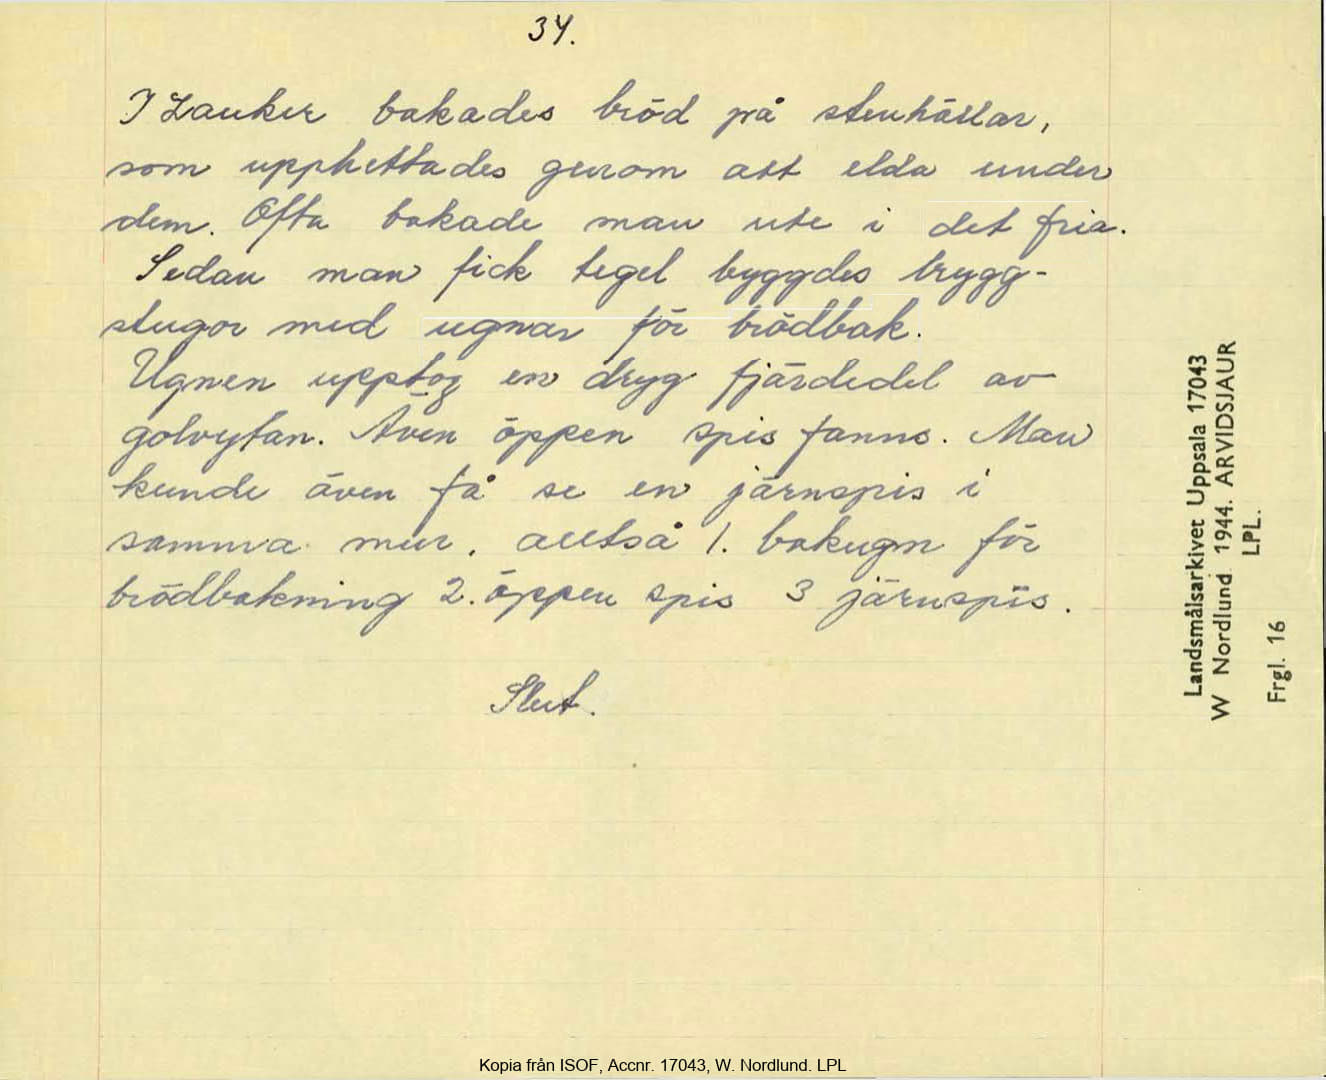 34.
I Lauker bakades bröd på stenhällar,
som upphettades genom att elda under
dem. Ofta bakade man ute i det fria.
Sedan man fick tegel byggdes brygg-
stugor med ugnar för brödbak.
Ugnen upptog en dryg fjärdedel av
golvytan. Även öppen spis fanns. Man
kunde även få se en järnspis i
samma mur, alltså 1. bakugn för
brödbakning 2. öppen spis 3 järnspis.
Slut.
Landsmålsarkivet Uppsala 17043
W Nordlund. 1944. ARVIDSJAUR
LPL.
Frgl. 16
Kopia från ISOF, Accnr. 17043, W. Nordlund. LPL